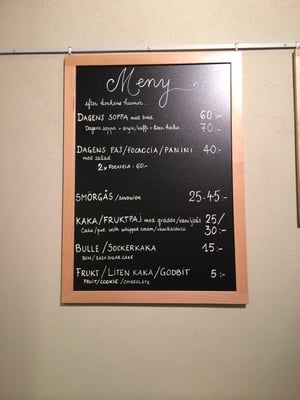 Meny
efter kockens humör...
DAGENS SOPPA med bröd 60:-
Dagens soppa + dryck/kaffe + liten kaka 70:-
DAGENS PAJ/FOCACCIA/PANINI 40:-
med sallad
2 x FOCACCIA: 60:-
SMÖRGÅS/SANDWICH 25-45:-
KAKA/FRUKTPAJ med grädde/vaniljsås 25/
Cake/pie with whipped cream/vanillasauce 30:-
BULLE/SOCKERKAKA 15:-
BUN/EASY SUGAR CAKE
FRUKT/LITEN KAKA/GODBIT 5:-
FRUIT/COOKIE/CHOCOLATE